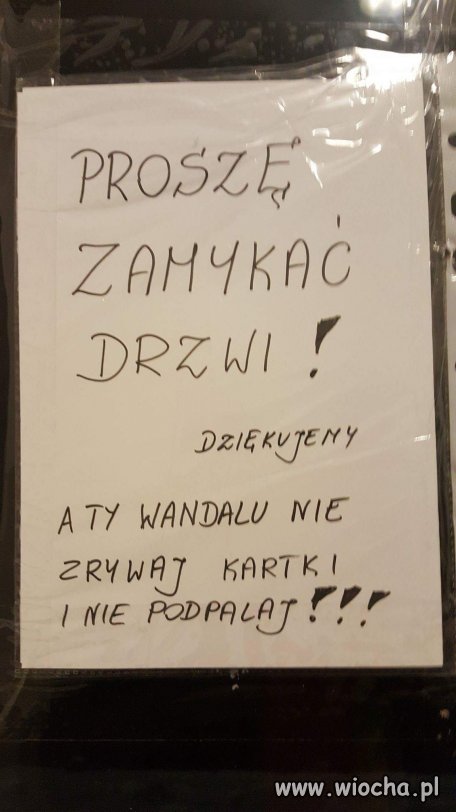 PROSZĘ
ZAMYKAĆ
DRZWI!
DZIĘKUJEMY
A TY WANDALU NIE
ZRYWAJ KARTKI
I NIE PODPALAJ!!!
www.wiocha.pl